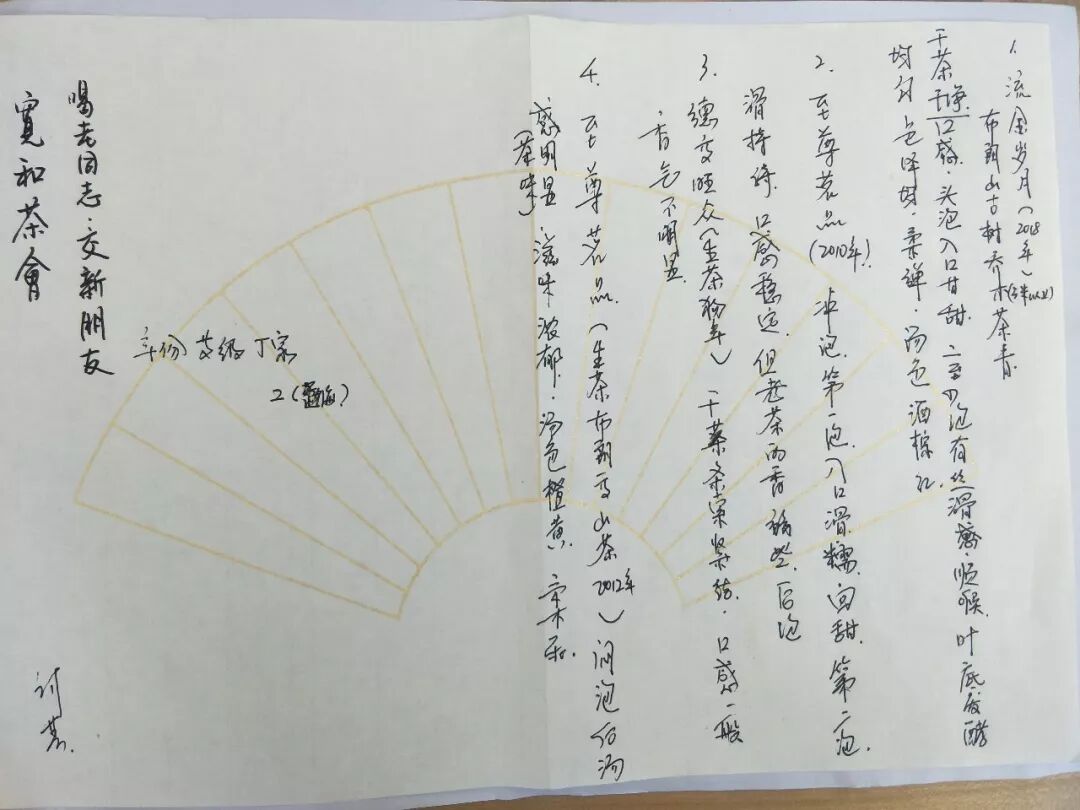 1. 流金岁月（2018年）
布朗山古树乔木茶青（3米以上）
干茶干净，口感：头泡入口甘甜，二至四泡有丝滑感，顺喉，叶底发酵
均匀，色泽好，柔弹，汤色酒棕红。
2. 至尊茗品（2010年）冲泡，第一泡，入口滑糯，回甜，第二泡，
滑持续，口感稳定，但老茶的香稍些，后泡
3. 德变旺众（生茶狗年）干茶条索紧结，口感一般
香气不明显
4. 至尊茗品（生茶布朗山茶2012年）润泡后汤
感明显，滋味浓郁，汤色橙黄，
（茶味）
年份 等级 厂家
2（勐海）
喝老同志·交新朋友
寬和茶會